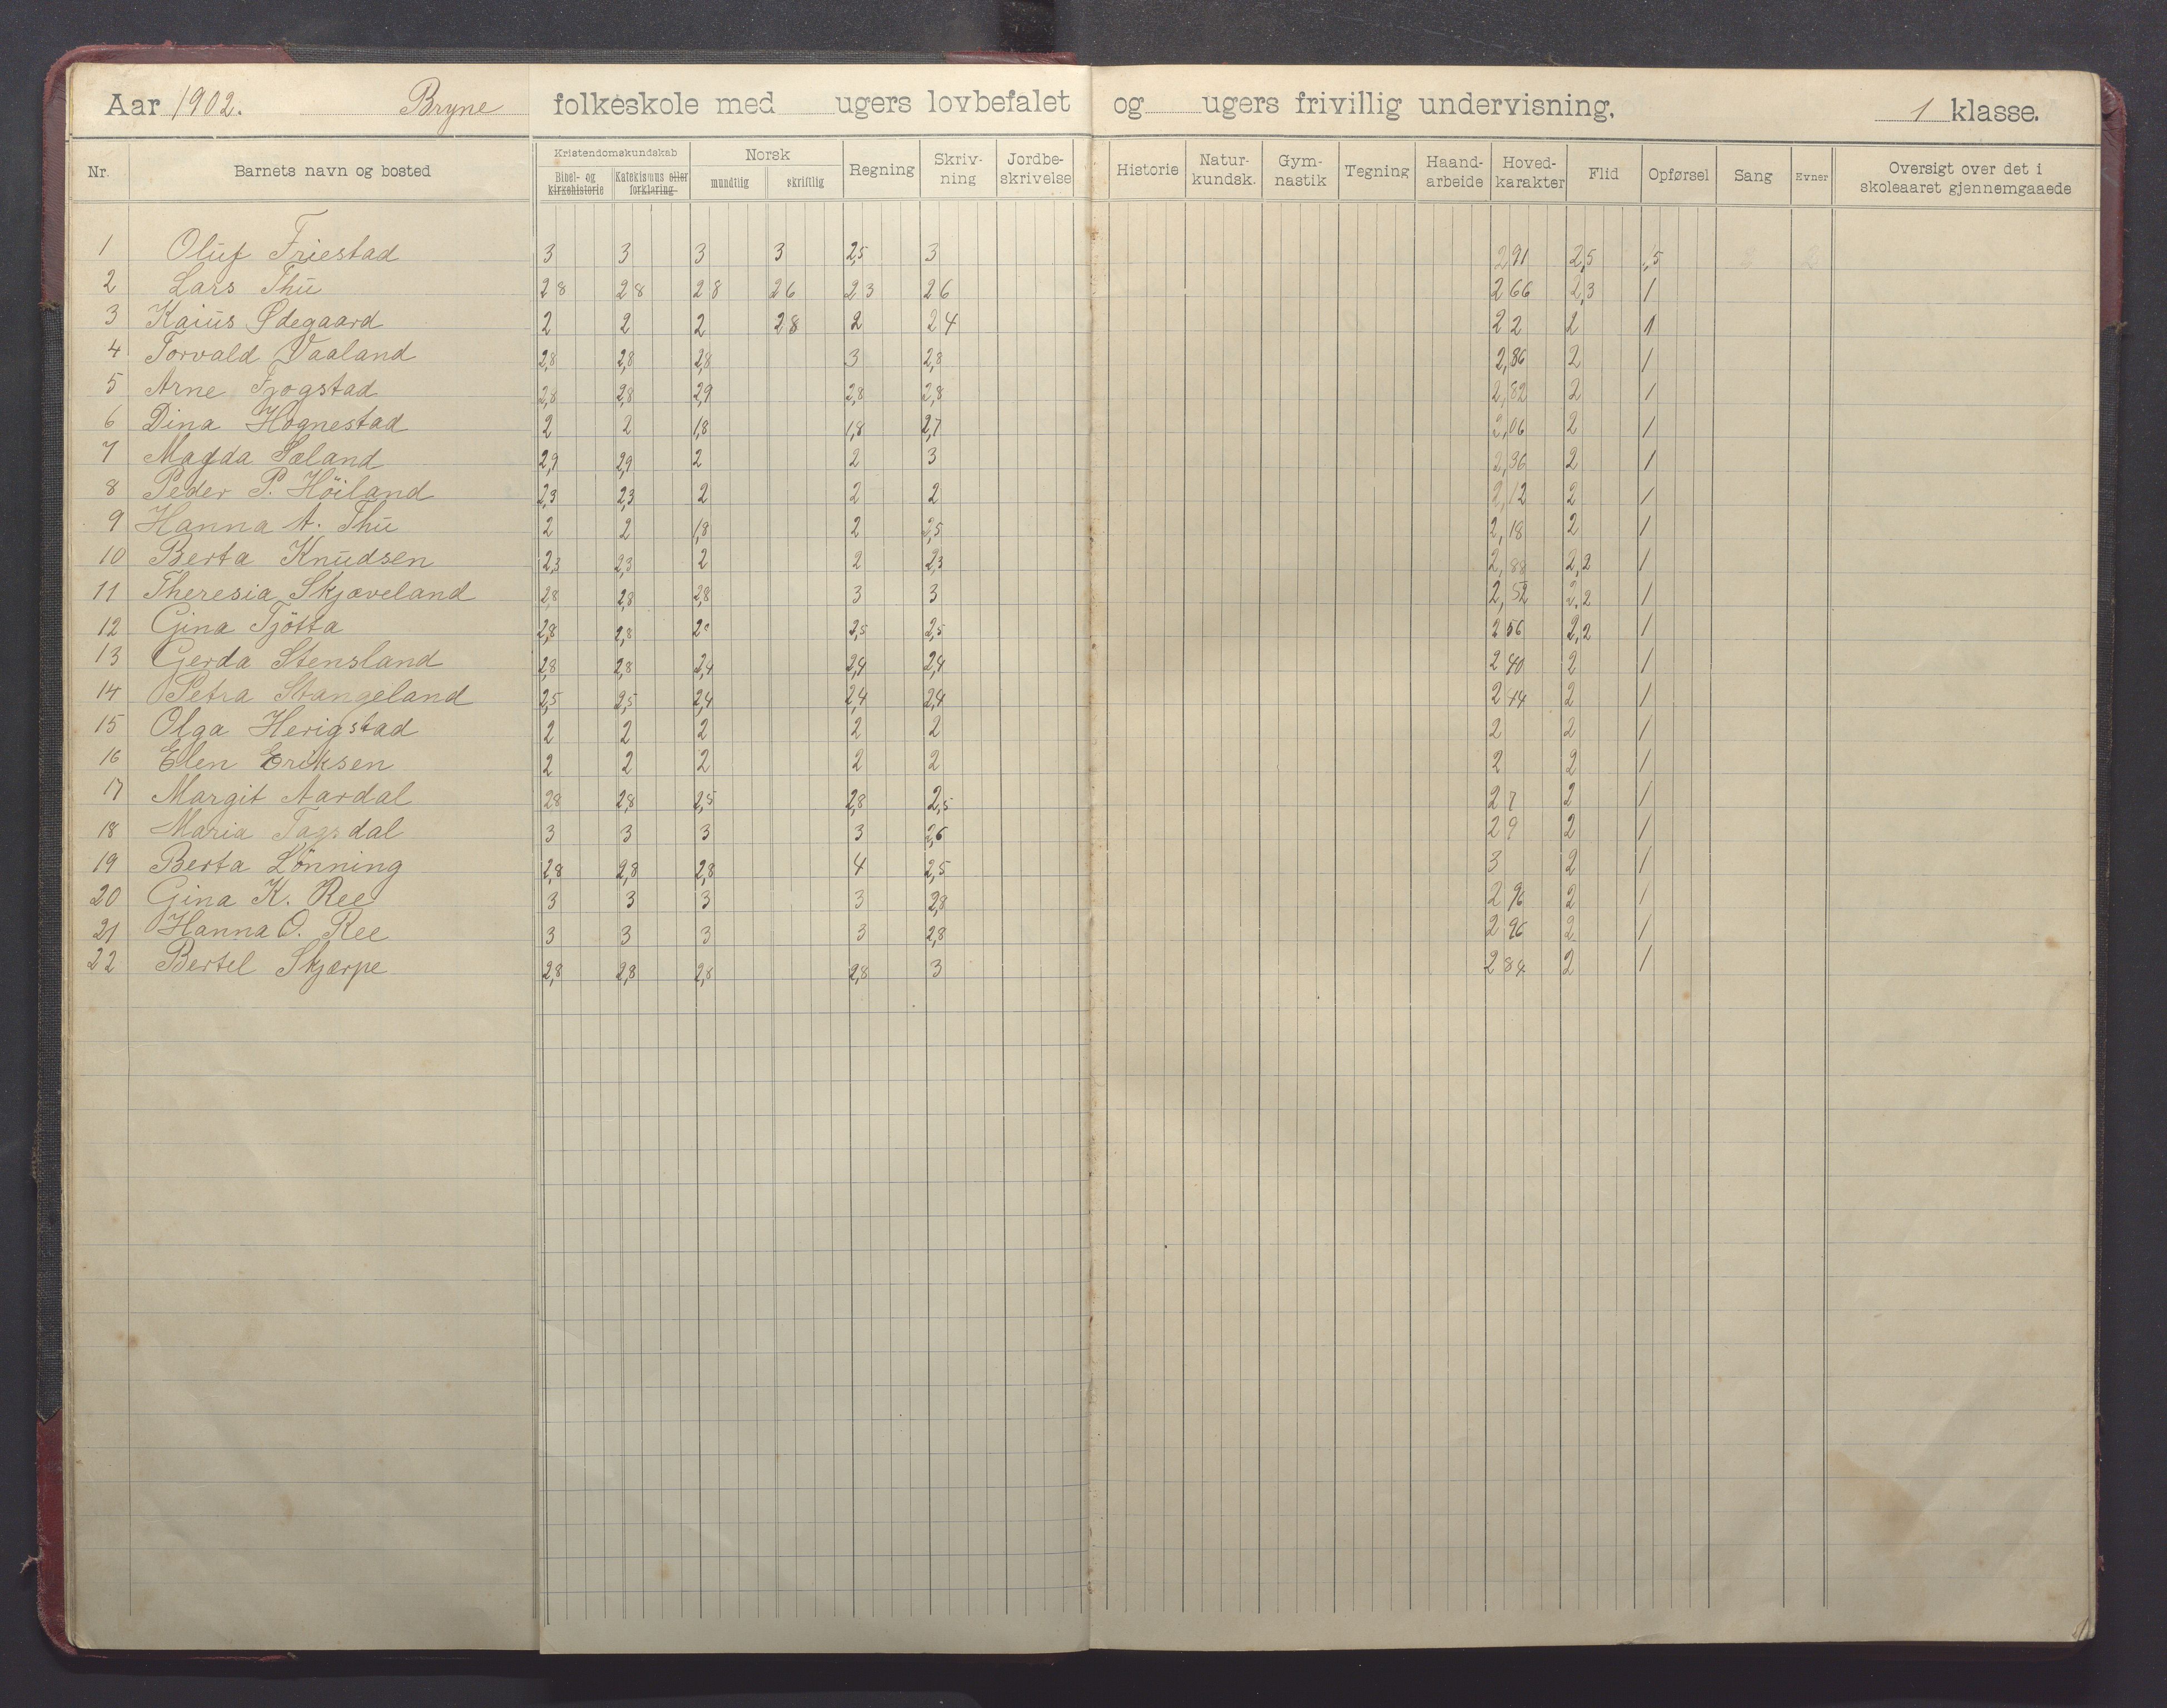 Aar 1902. Bryne folkeskole med ugers lovbefalet og ugers frivillig undervisning. 1 klasse.
Nr. Barnets navn og bosted Kristendomskundskab Bibel- og kirkehistorie Katekismus eller forklaring Norsk mundtlig skriftlig Regning Skriv-ning Jordbe-skrivelse Historie Natur-kundsk. Gym-nastik Tegning Haand-arbeide Hoved-karakter Flid Opførsel Sang Evner Oversigt over det i skoleaaret gjennemgaaede
1 Oluf Friestad 3 3 3 3 2,5 3 2 91 2,5 1,5
2 Lars Thu 2 8 2 8 2 8 2 6 2 3 2 6 2 66 2,3 1
3 Kaius Ødegaard 2 2 2 2 8 2 2 4 2 2 2 1
4 Torvald Vaaland 2,8 2,8 2,8 3 2,8 2,86 2 1
5 Arne Fjogstad 2,8 2,8 2,9 2,8 2,8 2,82 2 1
6 Dina Hognestad 2 2 1,8 1,8 2,7 2,06 2 1
7 Magda Sæland 2,9 2,9 2 2 3 2,36 2 1
8 Peder P. Höiland 2,3 2,3 2 2 2 2,12 2 1
9 Hanna A. Thu 2 2 1,8 2 2,5 2,18 2 1
10 Berta Knudsen 2,3 2,3 2 2 2,3 2,88 2,2 1
11 Theresia Skjæveland 2,8 2,8 2,8 3 3 2,52 2,2 1
12 Gina Tjötta 2,8 2,8 2,5 2,5 2 56 2,2 1
13 Gerda Stensland 2,8 2,8 2,4 2,4 2,4 2 40 2 1
14 Petra Stangeland 2,5 2,5 2,4 2,4 2,4 2 44 2 1
15 Olga Herigstad 2 2 2 2 2 2 2 1
16 Elen Eriksen 2 2 2 2 2 2 2 1
17 Margit Aardal 2 8 2,8 2,5 2,8 2,5 2 7 2 1
18 Maria Tagsdal 3 3 3 3 2,6 2 9 2 1
19 Berta Lönning 2,8 2,8 2,8 4 2,5 3 2 1
20 Gina K. Ree 3 3 3 3 2,8 2 96 2 1
21 Hanna O. Ree 3 3 3 3 2,8 2 96 2 1
22 Bertel Skjærpe 2,8 2,8 2,8 2,8 3 2 84 2 1